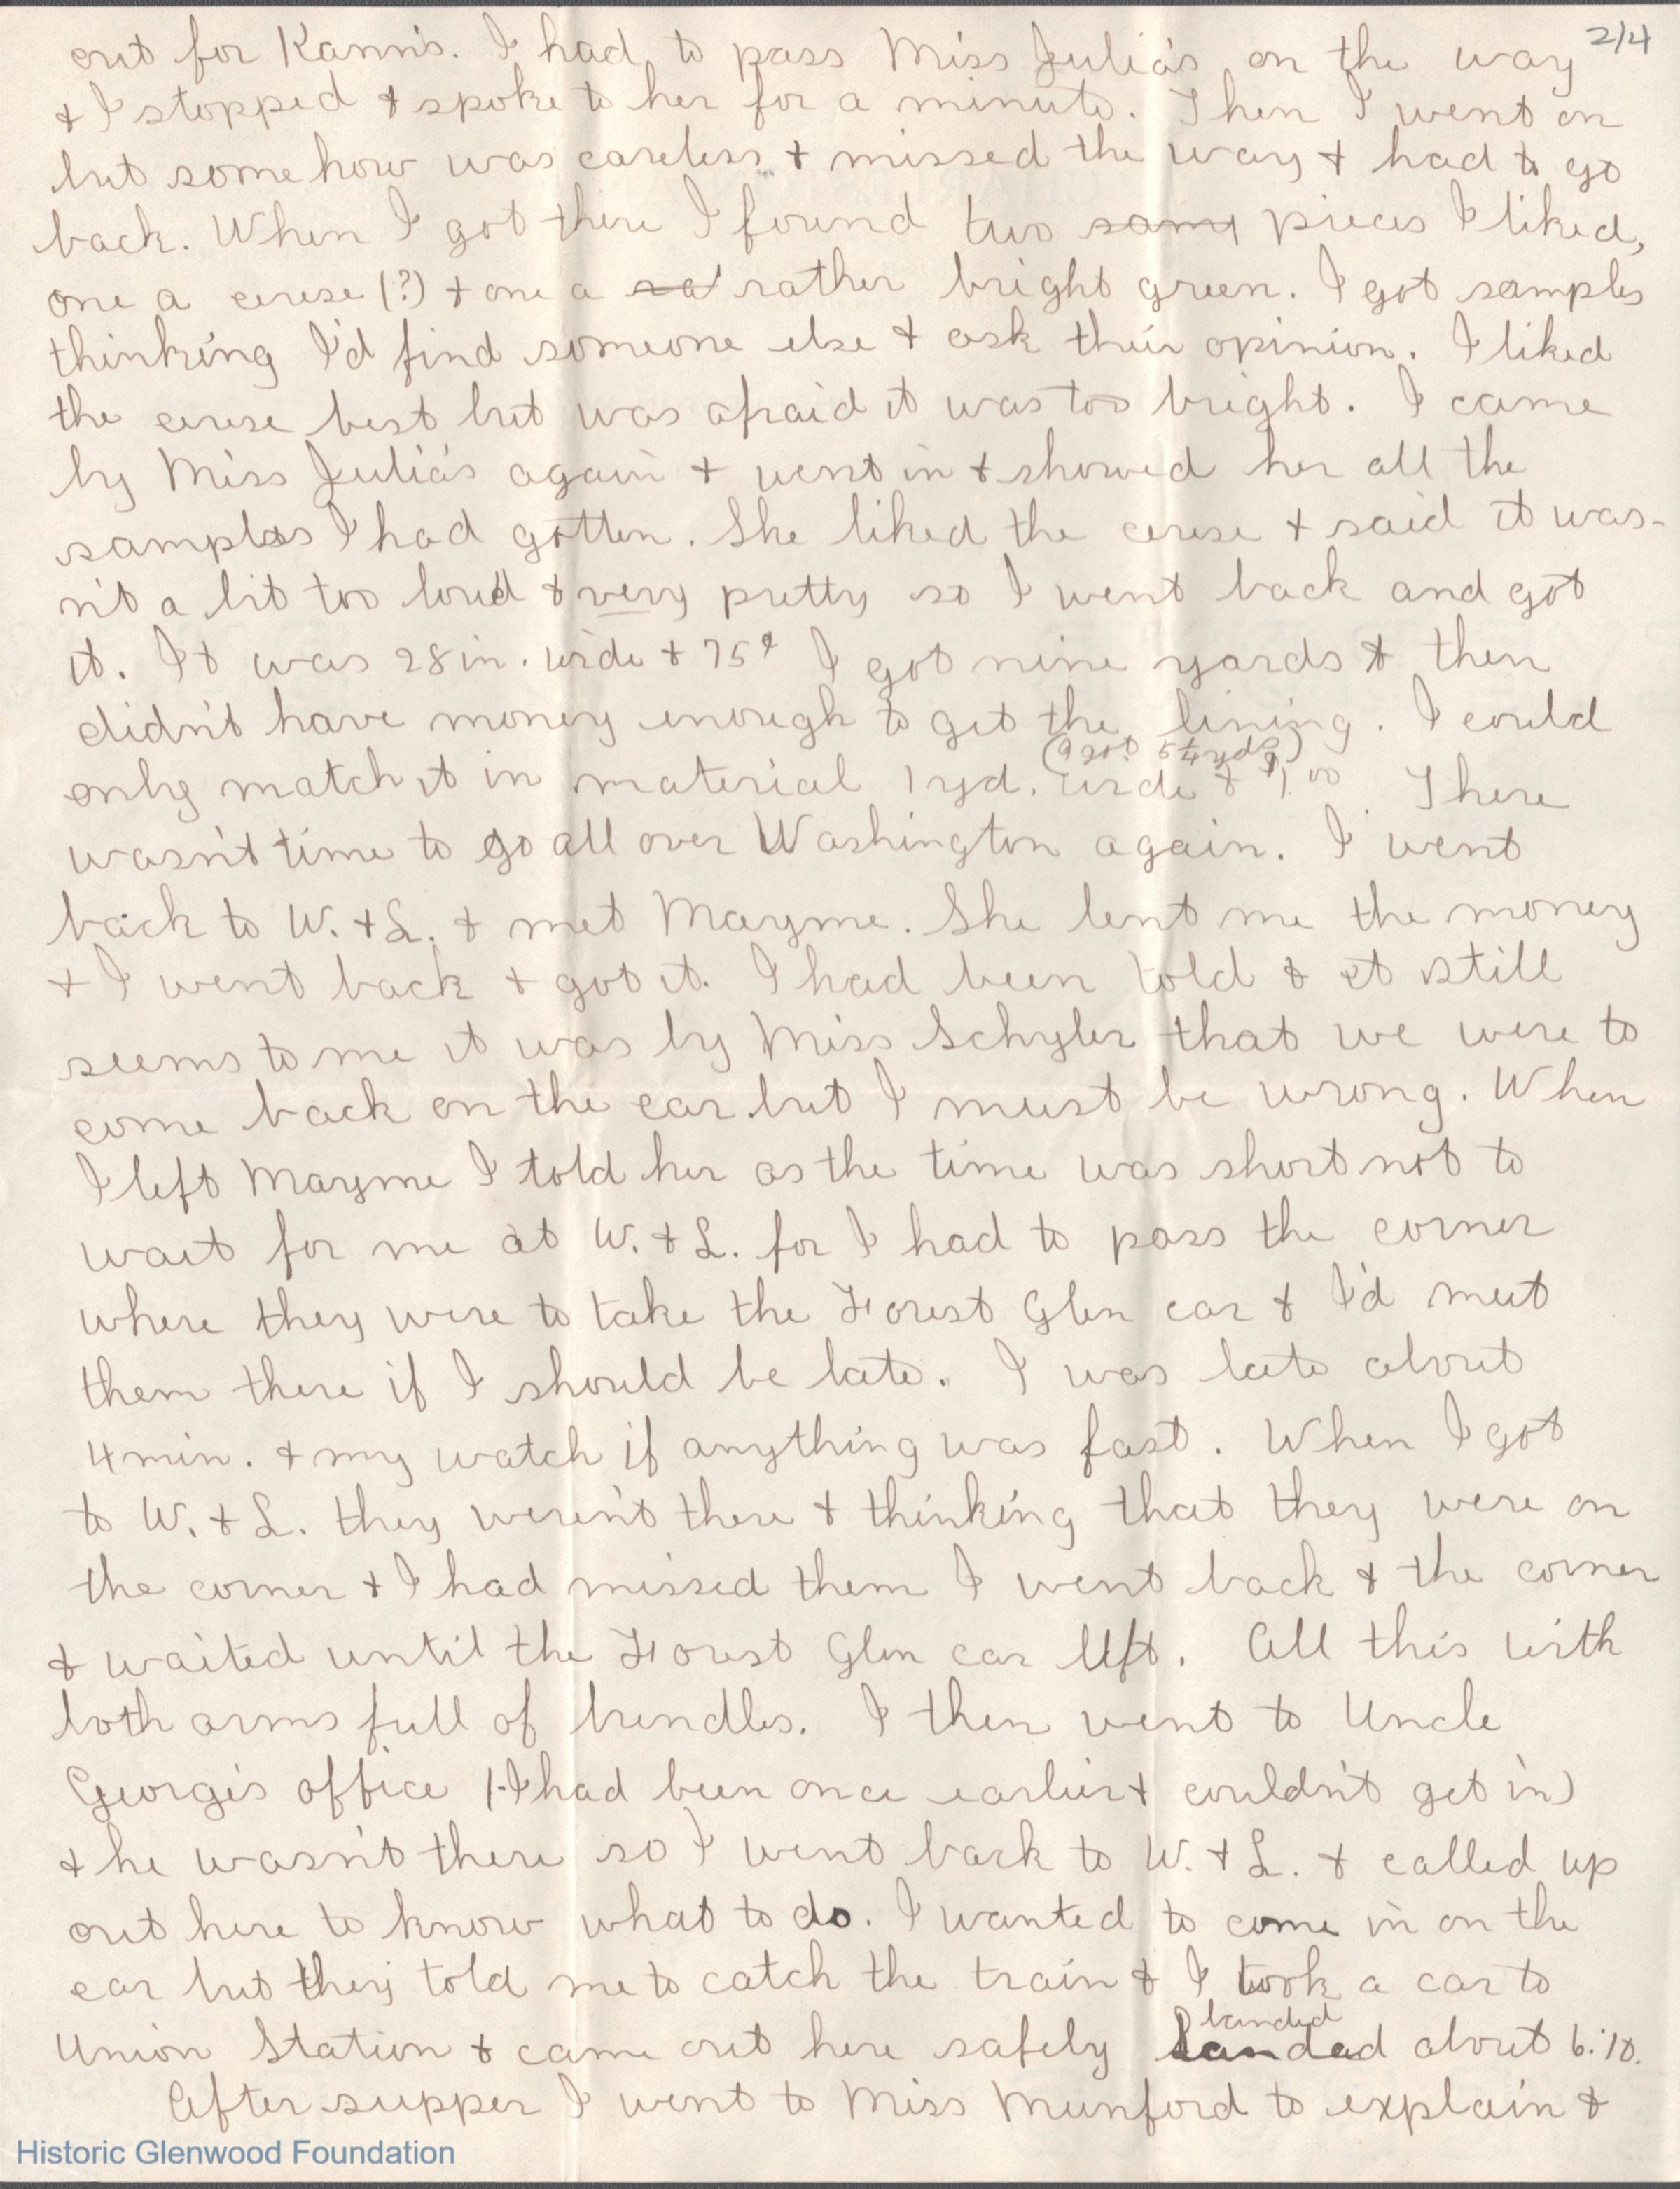 2/4
out for Kann's. I had to pass Miss Julia's on the way
& I stopped & spoke to her for a minute. Then I went on
but somehow was careless & missed the way & had to go
back. When I got there I found two samp pieces I liked,
one a cerese (?) & one a ra rather bright green. I got samples
thinking I'd find someone else & ask their opinion. I liked
the cerese best but was afraid it was too bright. I came
by Miss Julia's again & went in & showed her all the
samples I had gotten. She liked the cerese & said it was-
n't a bit too loud & very pretty so I went back and got
it. It was 28 in. wide & 75¢ I got nine yards & then
didn't have money enough to get the lining. I could
(I got 5¼ yds)
only match it in material 1 yd. wide & $1.00. There
wasn't time to go all over Washington again. I went
back to W. & L. & met Mayme. She lent me the money
& I went back & got it. I had been told & it still
seems to me it was by Miss Schyler that we were to
come back on the car but I must be wrong. When
I left Mayme I told her as the time was short not to
wait for me at W. & L. for I had to pass the corner
where they were to take the Forest Glen car & I'd meet
them there if I should be late. I was late about
4 min. & my watch if anything was fast. When I got
to W. & L. they weren't there & thinking that they were on
the corner & I had missed them I went back & the corner
& waited until the Forest Glen car left. All this with
both arms full of bundles. I then went to Uncle
George's office (I had been once earlier & couldn't get in)
& he wasn't there so I went back to W. & L. & called up
out here to know what to do. I wanted to come in on the
car but they told me to catch the train & I took a car to
landed
Union Station & came out here safely landed about 6:10.
After supper I went to Miss Munford to explain &
Historic Glenwood Foundation